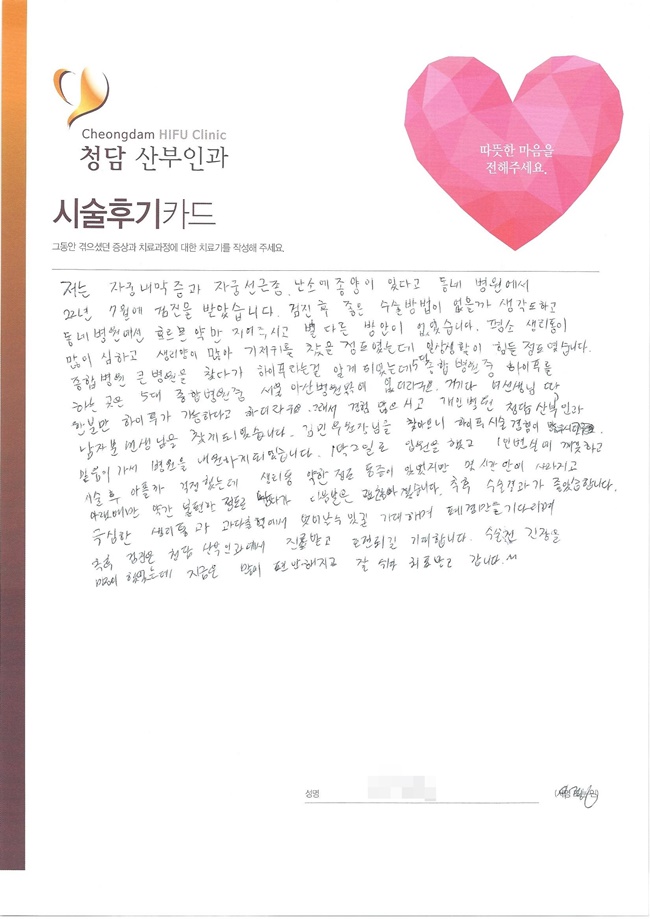 Cheongdam HIFU Clinic
청담 산부인과
따뜻한 마음을
전해주세요.
시술후기카드
그동안 겪으셨던 증상과 치료과정에 대한 치료기를 작성해 주세요.
저는 자궁내막증과 자궁선근증, 난소에 종양이 있다고 동네 병원에서
22년 7월에 검진을 받았습니다. 검진 후 좋은 수술방법이 없을까 생각도하고
동네병원에선 호르몬 약만 지어주시고 별 다른 방안이 없었습니다. 평소 생리통이
많이 심하고 생리양이 많아 기저귀를 찾을 정도였는데 일상생활이 힘든 정도였습니다.
종합병원 큰병원을 찾다가 하이푸라는걸 알게되었는데 5대 종합병원중 하이푸를
하는 곳은 5대 종합병원중 서울 아산병원밖에 없더라구요. 게다 여선생님 딱
한분만 하이푸가 가능하다고 하더라구요. 그래서 경험 많으시고 개인병원 청담산부인과
남자분 선생님을 찾게되었습니다. 김민우원장님을 찾아보니 하이푸시술 경험이
믿음이가서 병원을 내원하게되었습니다. 1박2일로 입원을 했고 1인병실이며 깨끗하고
시술 후 아플까 걱정했는데 생리통 약한 정도 통증이 있었지만 몇시간만에 사라지고
아랫배만 약간 불편한 정도로 있다가 다음날은 괜찮아졌습니다. 추후 수술경과가 좋았습니다.
극심한 생리통과 과다출혈에서 벗어날수 있길 기대하며 폐경만을기다리며
추후 검진은 청담 산부인과에서 진료받고 호전되길 기대합니다. 수술전 긴장을
많이 했었는데 지금은 많이 편안해지고 잘 쉬다 치료받고 갑니다.
성명